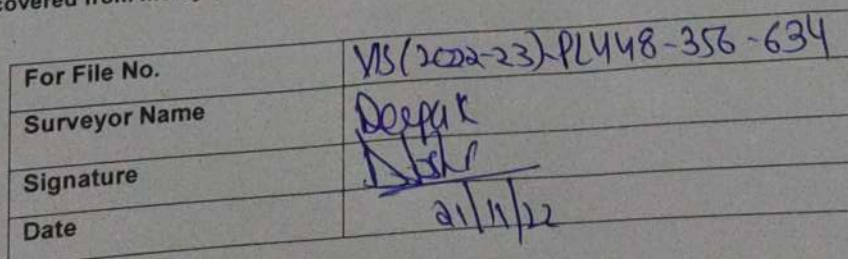 covered from
For File No. VIS(2022-23)-PL448-356-634
Surveyor Name Deepak
Signature
Date 21/11/22